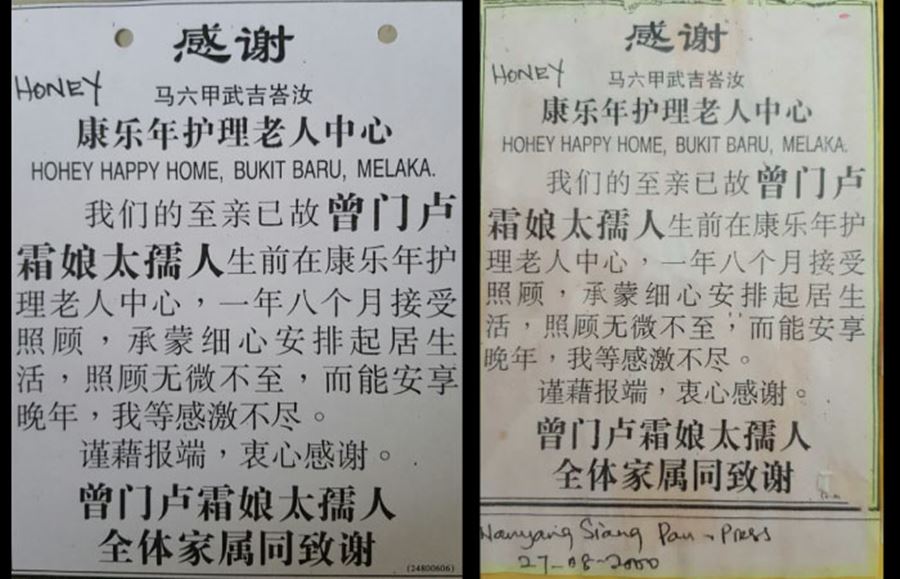 感谢
HONEY
马六甲武吉峇汝
康乐年护理老人中心
HOHEY HAPPY HOME, BUKIT BARU, MELAKA.
我们的至亲已故曾门卢
霜娘太孺人生前在康乐年护
理老人中心，一年八个月接受
照顾，承蒙细心安排起居生
活，照顾无微不至，而能安享
晚年，我等感激不尽。
谨藉报端，衷心感谢。
曾门卢霜娘太孺人
全体家属同致谢
(24800606)
感谢
HONEY
马六甲武吉峇汝
康乐年护理老人中心
HOHEY HAPPY HOME, BUKIT BARU, MELAKA.
我们的至亲已故曾门卢
霜娘太孺人生前在康乐年护
理老人中心，一年八个月接受
照顾，承蒙细心安排起居生
活，照顾无微不至，而能安享
晚年，我等感激不尽。
谨藉报端，衷心感谢。
曾门卢霜娘太孺人
全体家属同致谢
Nanyang Siang Pau - Press
27-08-2000